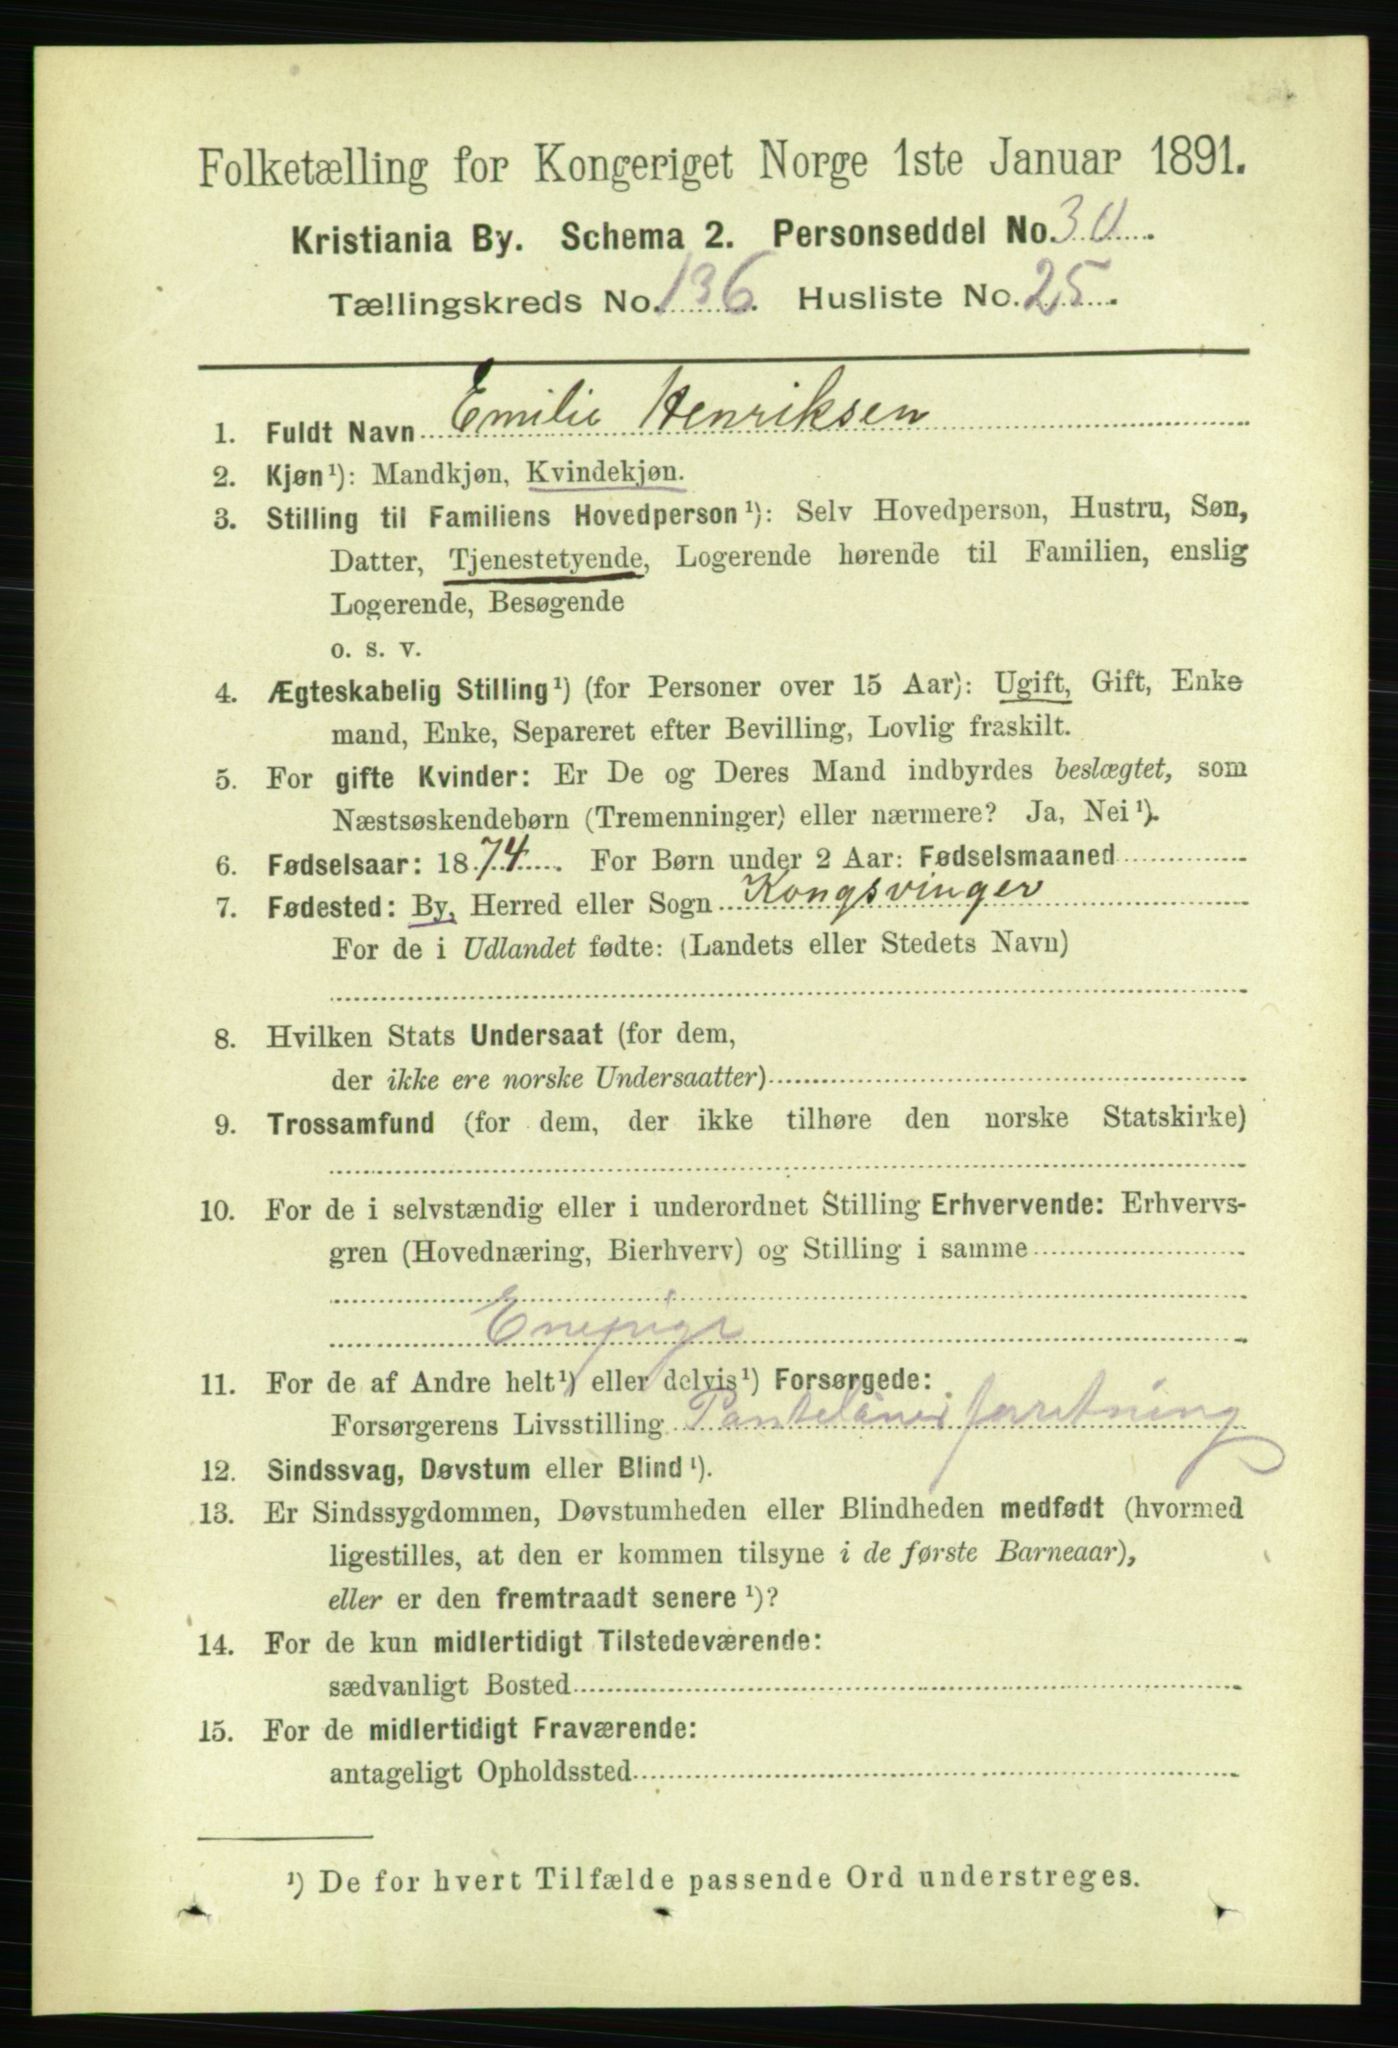 Folketælling for Kongeriget Norge 1ste Januar 1891.
Kristiania By. Schema 2. Personseddel No. 30
Tællingskreds No. 136. Husliste No. 25.
1. Fuldt Navn Emilie Henriksen
2. Kjøn¹): Mandkjøn, Kvindekjøn.
3. Stilling til Familiens Hovedperson¹): Selv Hovedperson, Hustru, Søn,
Datter, Tjenestetyende, Logerende hørende til Familien, enslig
Logerende, Besøgende
o. s. v.
4. Ægteskabelig Stilling¹) (for Personer over 15 Aar): Ugift, Gift, Enke
mand, Enke, Separeret efter Bevilling, Lovlig fraskilt.
5. For gifte Kvinder: Er De og Deres Mand indbyrdes beslægtet, som
Næstsøskendebørn (Tremenninger) eller nærmere? Ja, Nei¹).
6. Fødselsaar: 1874. For Børn under 2 Aar: Fødselsmaaned
7. Fødested: By, Herred eller Sogn Kongsvinger
For de i Udlandet fødte: (Landets eller Stedets Navn)
8. Hvilken Stats Undersaat (for dem,
der ikke ere norske Undersaatter)
9. Trossamfund (for dem, der ikke tilhøre den norske Statskirke)
10. For de i selvstændig eller i underordnet Stilling Erhvervende: Erhvervs-
gren (Hovednæring, Bierhverv) og Stilling i samme
Enepige
11. For de af Andre helt¹) eller delvis¹) Forsørgede:
Forsørgerens Livsstilling forretning
12. Sindssvag, Døvstum eller Blind¹).
13. Er Sindssygdommen, Døvstumheden eller Blindheden medfødt (hvormed
ligestilles, at den er kommen tilsyne i de første Barneaar),
eller er den fremtraadt senere¹)?
14. For de kun midlertidigt Tilstedeværende:
sædvanligt Bosted
15. For de midlertidigt Fraværende:
antageligt Opholdssted
¹) De for hvert Tilfælde passende Ord understreges.